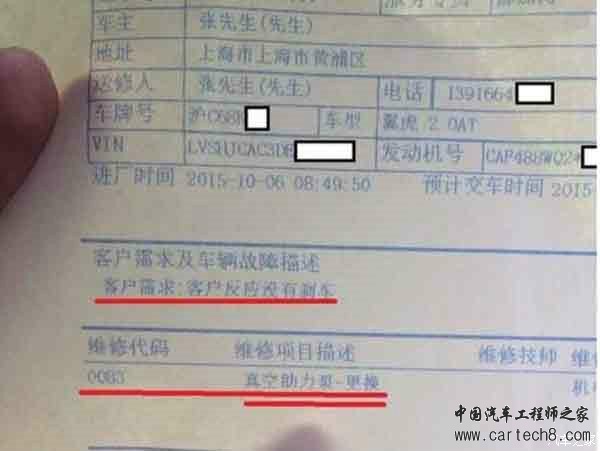 车主 张先生(先生)
地址 上海市上海市黄浦区
送修人 张先生(先生) 电话 1391664
车牌号 沪C68H 车型 翼虎 2.0AT
VIN LVSHJCAC3DE 发动机号 CAF488WQ2
进厂时间 2015-10-06 08:49:50 预计交车时间 2015-
客户需求及车辆故障描述
客户需求:客户反应没有刹车
维修代码 维修项目描述 维修技师 维
00B3 真空助力泵-更换 机
中国汽车工程师之家
www.cartech8.com